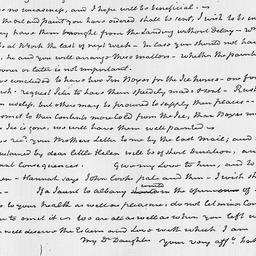 no uneasiness, and I hope will be beneficial. is
the oil and paint you have ordered shall be sent, I wish to be in
may have them brought from the Landing without delay -
be at Work the last of next week - In case you should not have
, he and you will arrange these matters - whether the painte
or later is not important.
concluded to have two Tin Boxes for the Ice house - one for
request Peter to have them speedily made & sent -
myself, but others may be procured to supply their places - -
to their contents more cold from the Ice, than Boxes m
Ice is gone, we will have them well painted
rec'd your Mothers letter to me by the last Mail, and
by dear little Helen will be of short duration, are
consequences. Give my love to him, and to
Hannah says John looks pale and thin - I wish sh
If a Jaunt to Albany would in the opinion of
to your health as well as pleasure, do not let mine Con
to omit it We are all as well as when you left u
well deserve the Esteem and Love with which I am
My Dr Daughter Your very affte